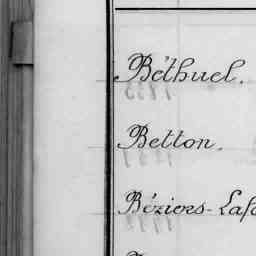 Béthuel.
Betton.
Béziers-Lafo